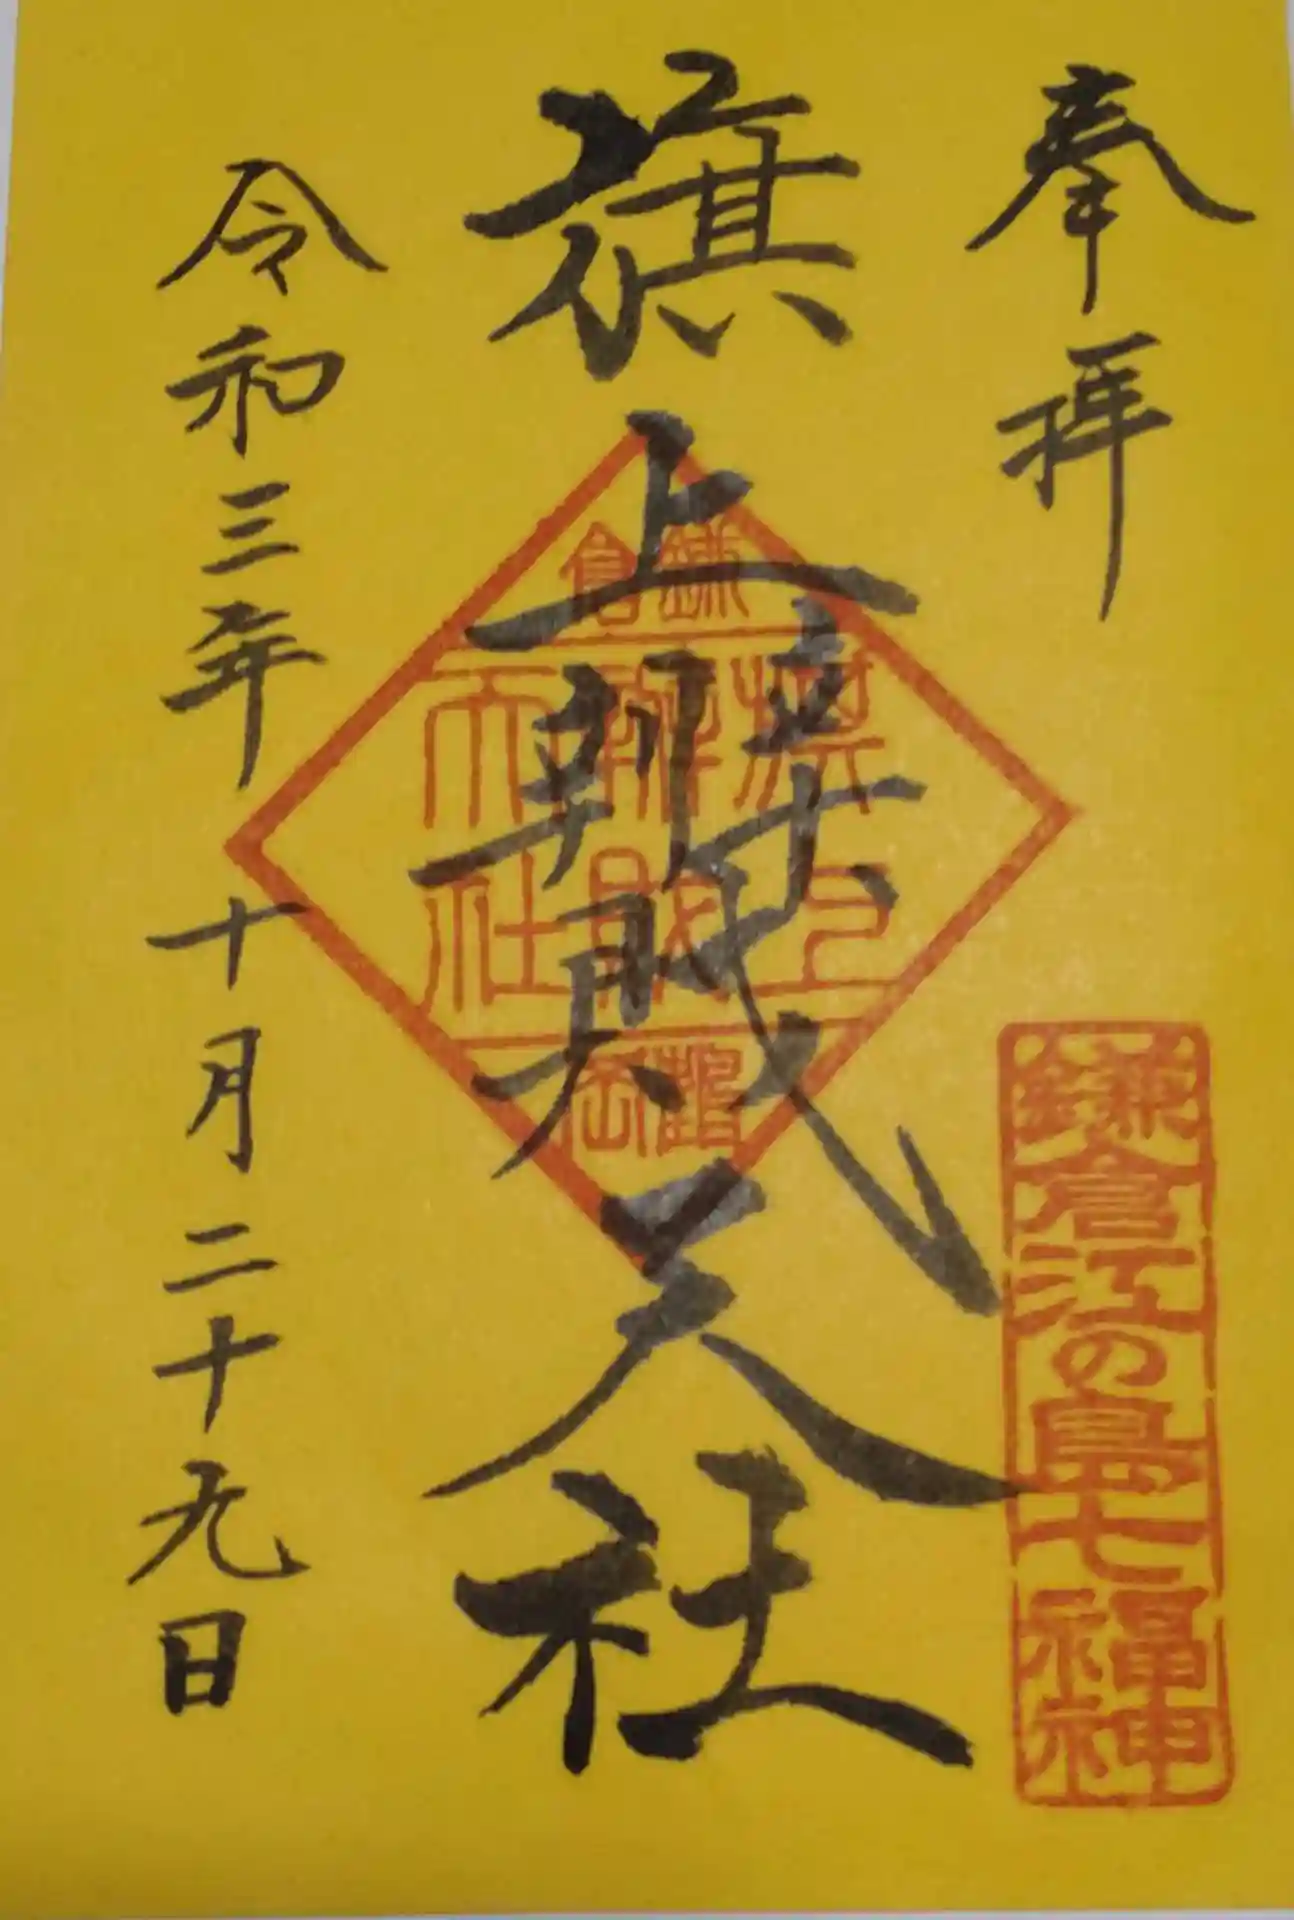 奉拝
鎌倉江の島七福神
旗上辨財天社
鎌倉
旗上
辨財
天社
令和三年十月二十九日